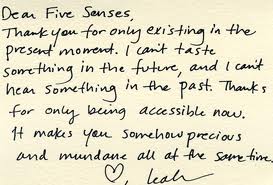 Dear Five Senses,
Thank you for only existing in the
present moment. I can't taste
something in the future, and I can't
hear something in the past. Thanks
for only being accessible now.
It makes you somehow precious
and mundane all at the same time.
♡, Leah